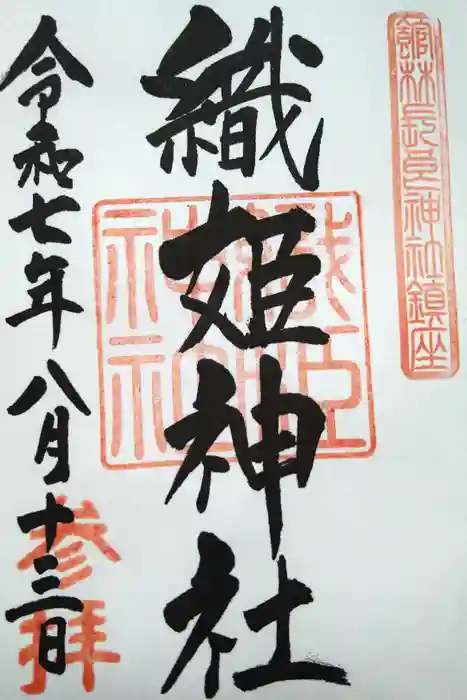 館林長良神社鎮座
織姫神社
織姫神社
令和七年八月十三日
参拝